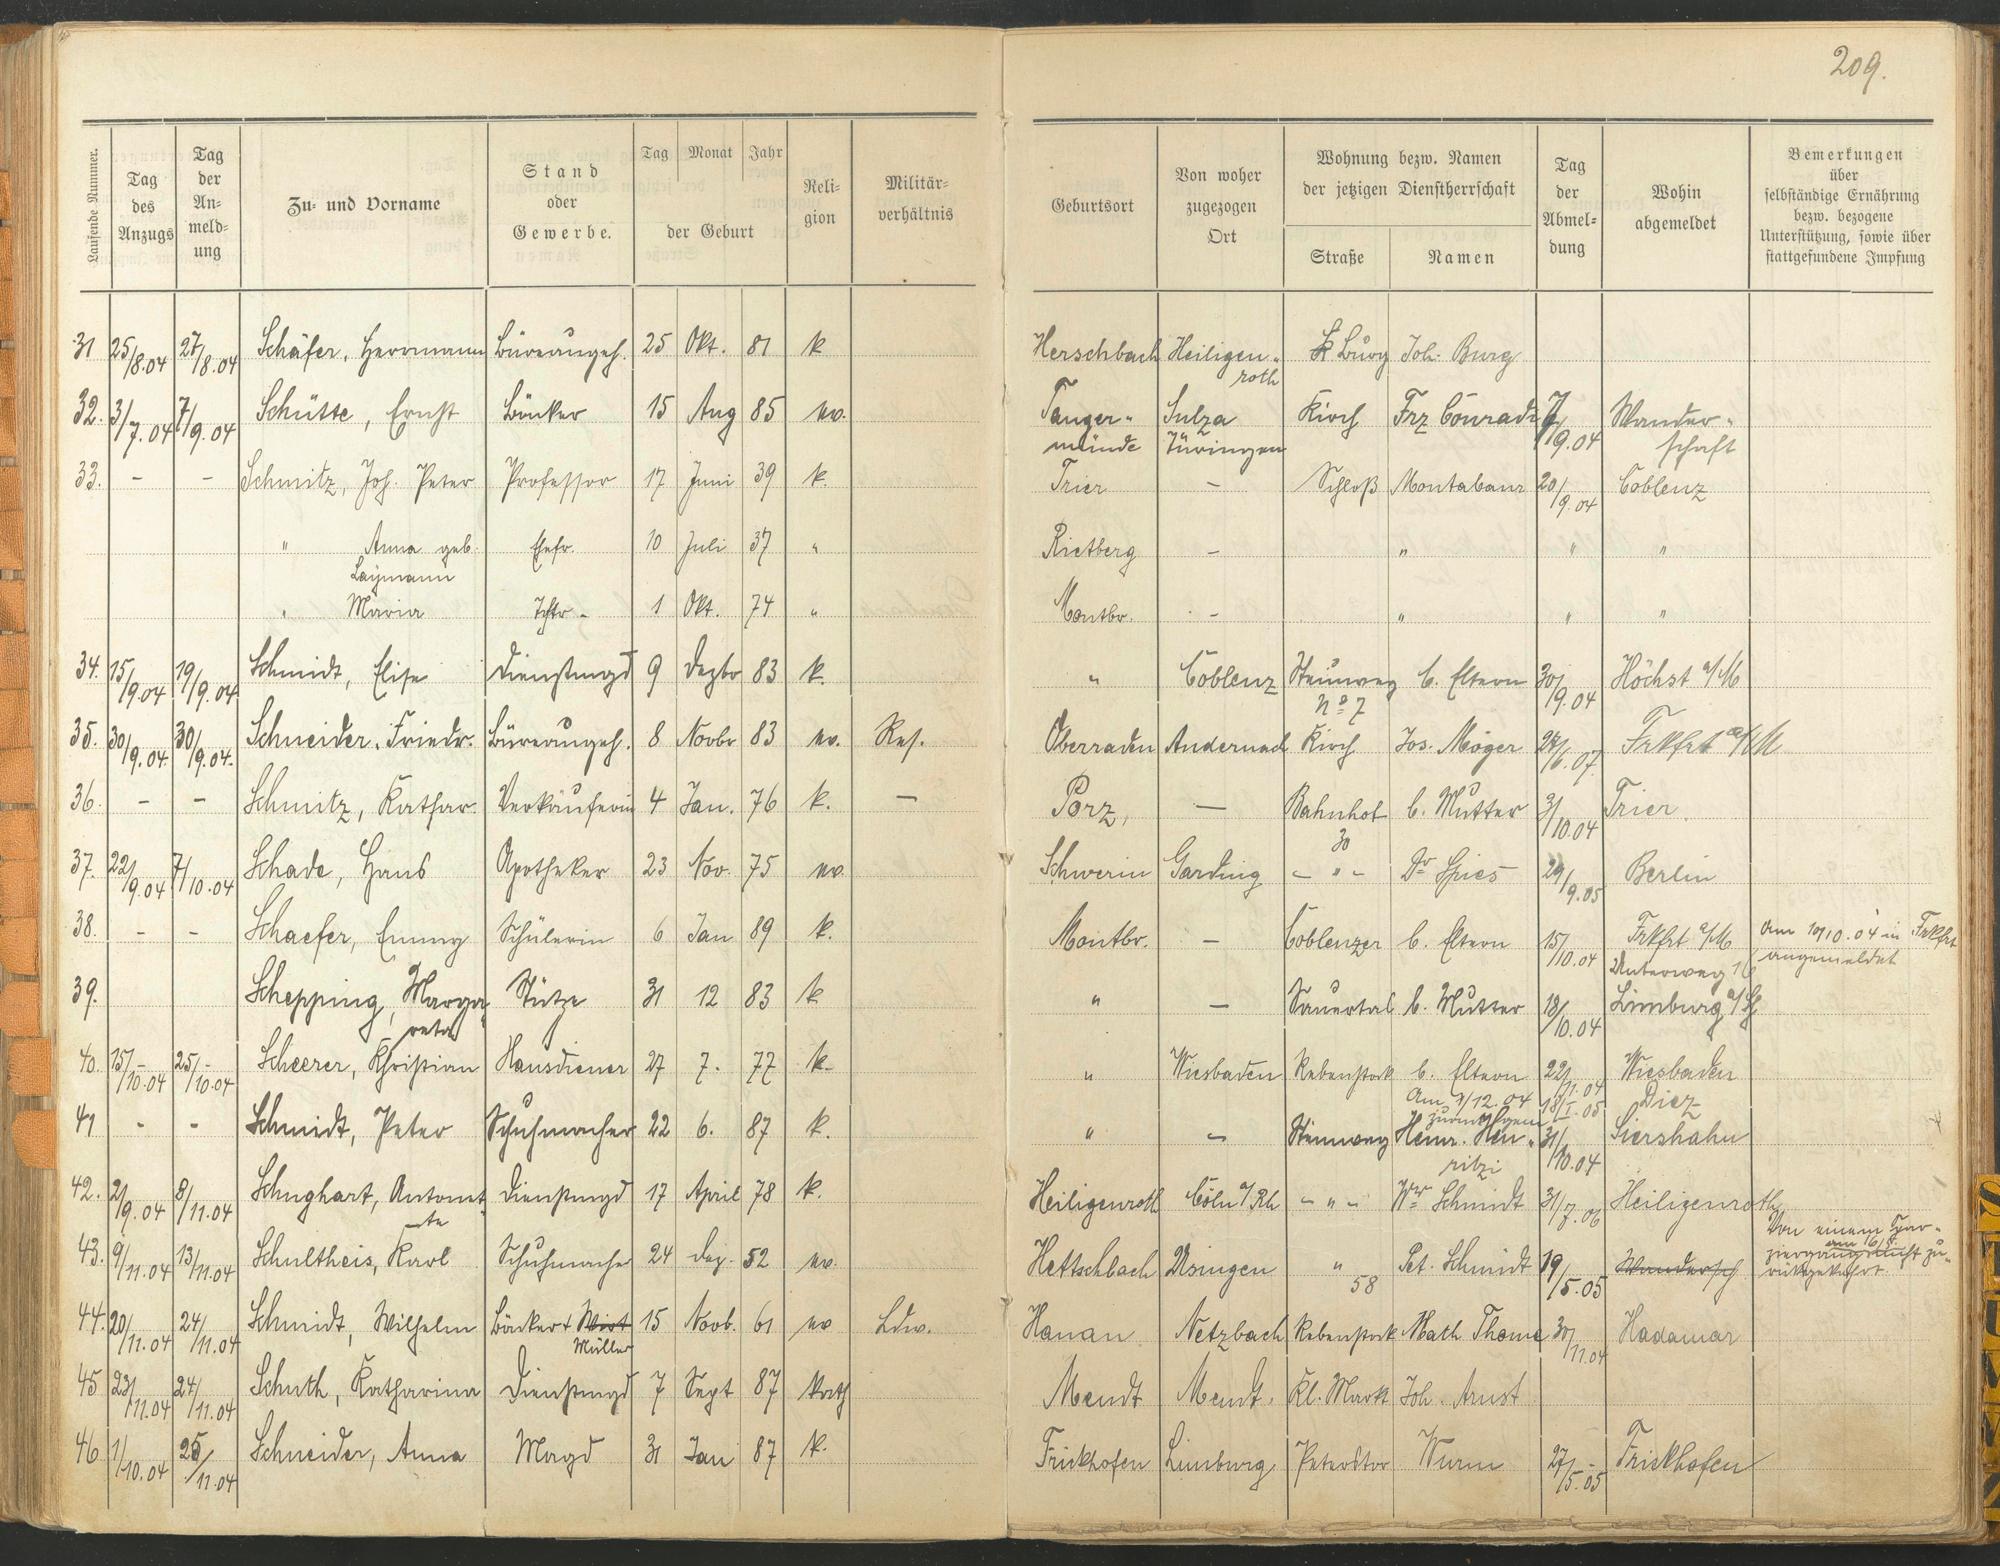 209.
Laufende Nummer.
Tag des Anzugs
Tag der An- meld- ung
Zu- und Vorname
Stand oder Gewerbe.
Tag Monat Jahr
der Geburt
Reli- gion
Militär- verhältnis
Geburtsort
Von woher zugezogen Ort
Wohnung bezw. Namen der jetzigen Dienstherrschaft
Straße Namen
Tag der Abmel- dung
Wohin abgemeldet
Bemerkungen über selbständige Ernährung bezw. bezogene Unterstützung, sowie über stattgefundene Impfung
31 25/8.04 27/8.04 Schäfer, Herrmann Büreaugeh. 25 Okt. 81 k Herschbach Heiligen- Burg Joh. Burg
roth
32. 3/7.04 7/9.04 Schütte, Ernst Bäcker 15 Aug 85 ev. Tanger- Sulza Kirch Frz Conradi 7/9.04 Wander-
münde Türingen schaft
33. - - Schmitz, Joh. Peter Professor 17 Juni 39 k. Trier - Schloß Montabaur 20/9.04 Coblenz
" Anna geb. Ehefr. 10 Juli 37 " Rietberg - " " "
Laymann
" Maria Tchtr - 1 Okt. 74 " Montbr. - " " "
34. 15/9.04 19/9.04 Schmidt, Elise Dienstmagd 9 Dezbr 83 k. " Coblenz Steinweg b. Eltern 30/9.04 Höchst a/M
No 7
35. 30/9.04. 30/9.04. Schneider, Friedr. Büreaugeh. 8 Novbr 83 ev. Res. Oberraden Andernach Kirch Jos. Möger /6.07. Frkfrt a/M
36. - - Schmitz, Kathar. Verkäuferin 4 Jan. 76 k. - Porz, - Bahnhof b. Mutter 3/10.04 Trier.
30
37. 22/9.04 7/10.04 Schade, Hans Apotheker 23 Nov. 75 ev. Schwerin Garding - " - Dr Spies 29/9.05 Berlin
38. - - Schaefer, Emmy Schülerin 6 Jan 89 k. Montbr. - Coblenzer b. Eltern 15/10.04 Frkfrt a/M Am 10/10.04 in Frkfrt
Unterweg angemeldet
39. Schepping, Marga- Stütze 31 12 83 k " - Sauertal b. Mutter 18/10.04 Limburg a/
reta
40. 15/10.04 25/10.04 Scheerer, Christian Hausdiener 27 7. 77 k. " Wiesbaden Rebenstock b. Eltern 22/11.04 Wiesbaden
Am /12.04 18/I.05 Diez
41 - - Schmidt, Peter Schuhmacher 22 6. 87 k. " - Steinweg Heinr. Hen- 31/10.04 Siershahn
ritzi
42. 2/9.04 8/11.04 Schughart, Antonet- Dienstmagd 17 April 78 k. Heiligenroth Cöln a/Rh - " - Ww Schmidt 31/7.06 Heiligenroth
te
43. 9/11.04 13/11.04 Schultheis, Karl Schuhmacher 24 Dez. 52 ev. Hettschbach Usingen " Pet. Schmidt 19/5.05 Wandersch Von einem Spa-
58 ziergang am 16/5. nicht zu-
rückgekehrt.
44. 20/11.04 24/11.04 Schmidt, Wilhelm Bäcker + Wirt 15 Novb. 61 ev Ldw. Hanau Netzbach Rebenstock Math Thome 30/11.04 Hadamar
Müller
45 23/11.04 24/11.04 Schuth, Katharina Dienstmagd 7 Sept 87 kath Meudt Meudt. Kl. Markt Joh. Arnst
46 1/10.04 25/11.04 Schneider, Anna Magd 31 Jan 87 k. Frickhofen Limburg Peterstor Wurm 27/5.05 Frickhofen